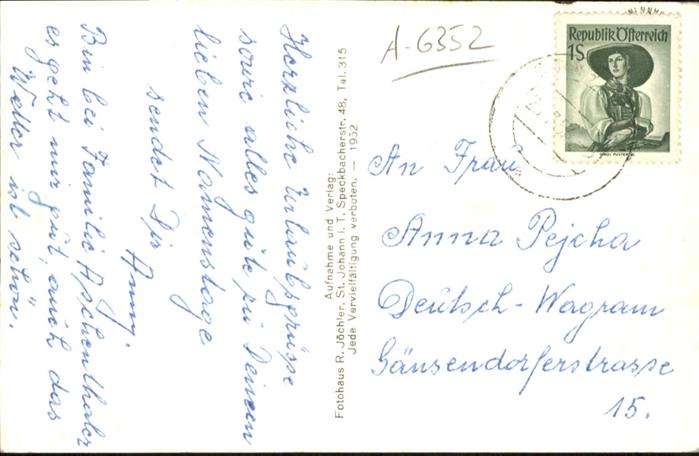 Herzliche Urlaubsgrüsse
sowie alles gute zu Deinem
lieben Namenstage
sendet Dir
Anny.
Bin bei Familie Aschenthaler
es geht mir gut, auch das
Wetter ist schön.
Aufnahme und Verlag:
Fotohaus R. Jöchler, St. Johann i. T., Speckbacherstr. 48, Tel. 315
Jede Vervielfältigung verboten. — 1952
A-6352
Republik Österreich
1S
An Frau
Anna Pejcha
Deutsch-Wagram
Gänsendorferstrasse
15.